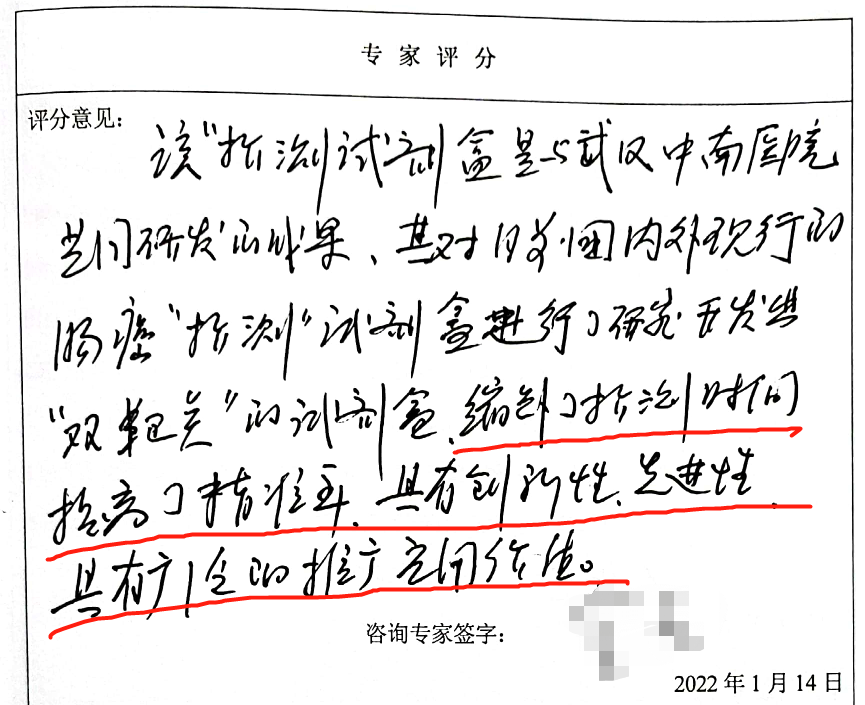 专家评分
评分意见:
该"检测试剂盒是与武汉中南医院
共同研发的成果、其对目前国内外现行的
肠癌"检测"试剂盒进行了研究 开发出
"双靶点"的试剂盒、缩短了检测时间
提高了精准率、具有创新性、先进性、
具有广泛的推广应用价值。
咨询专家签字:
2022年1月14日